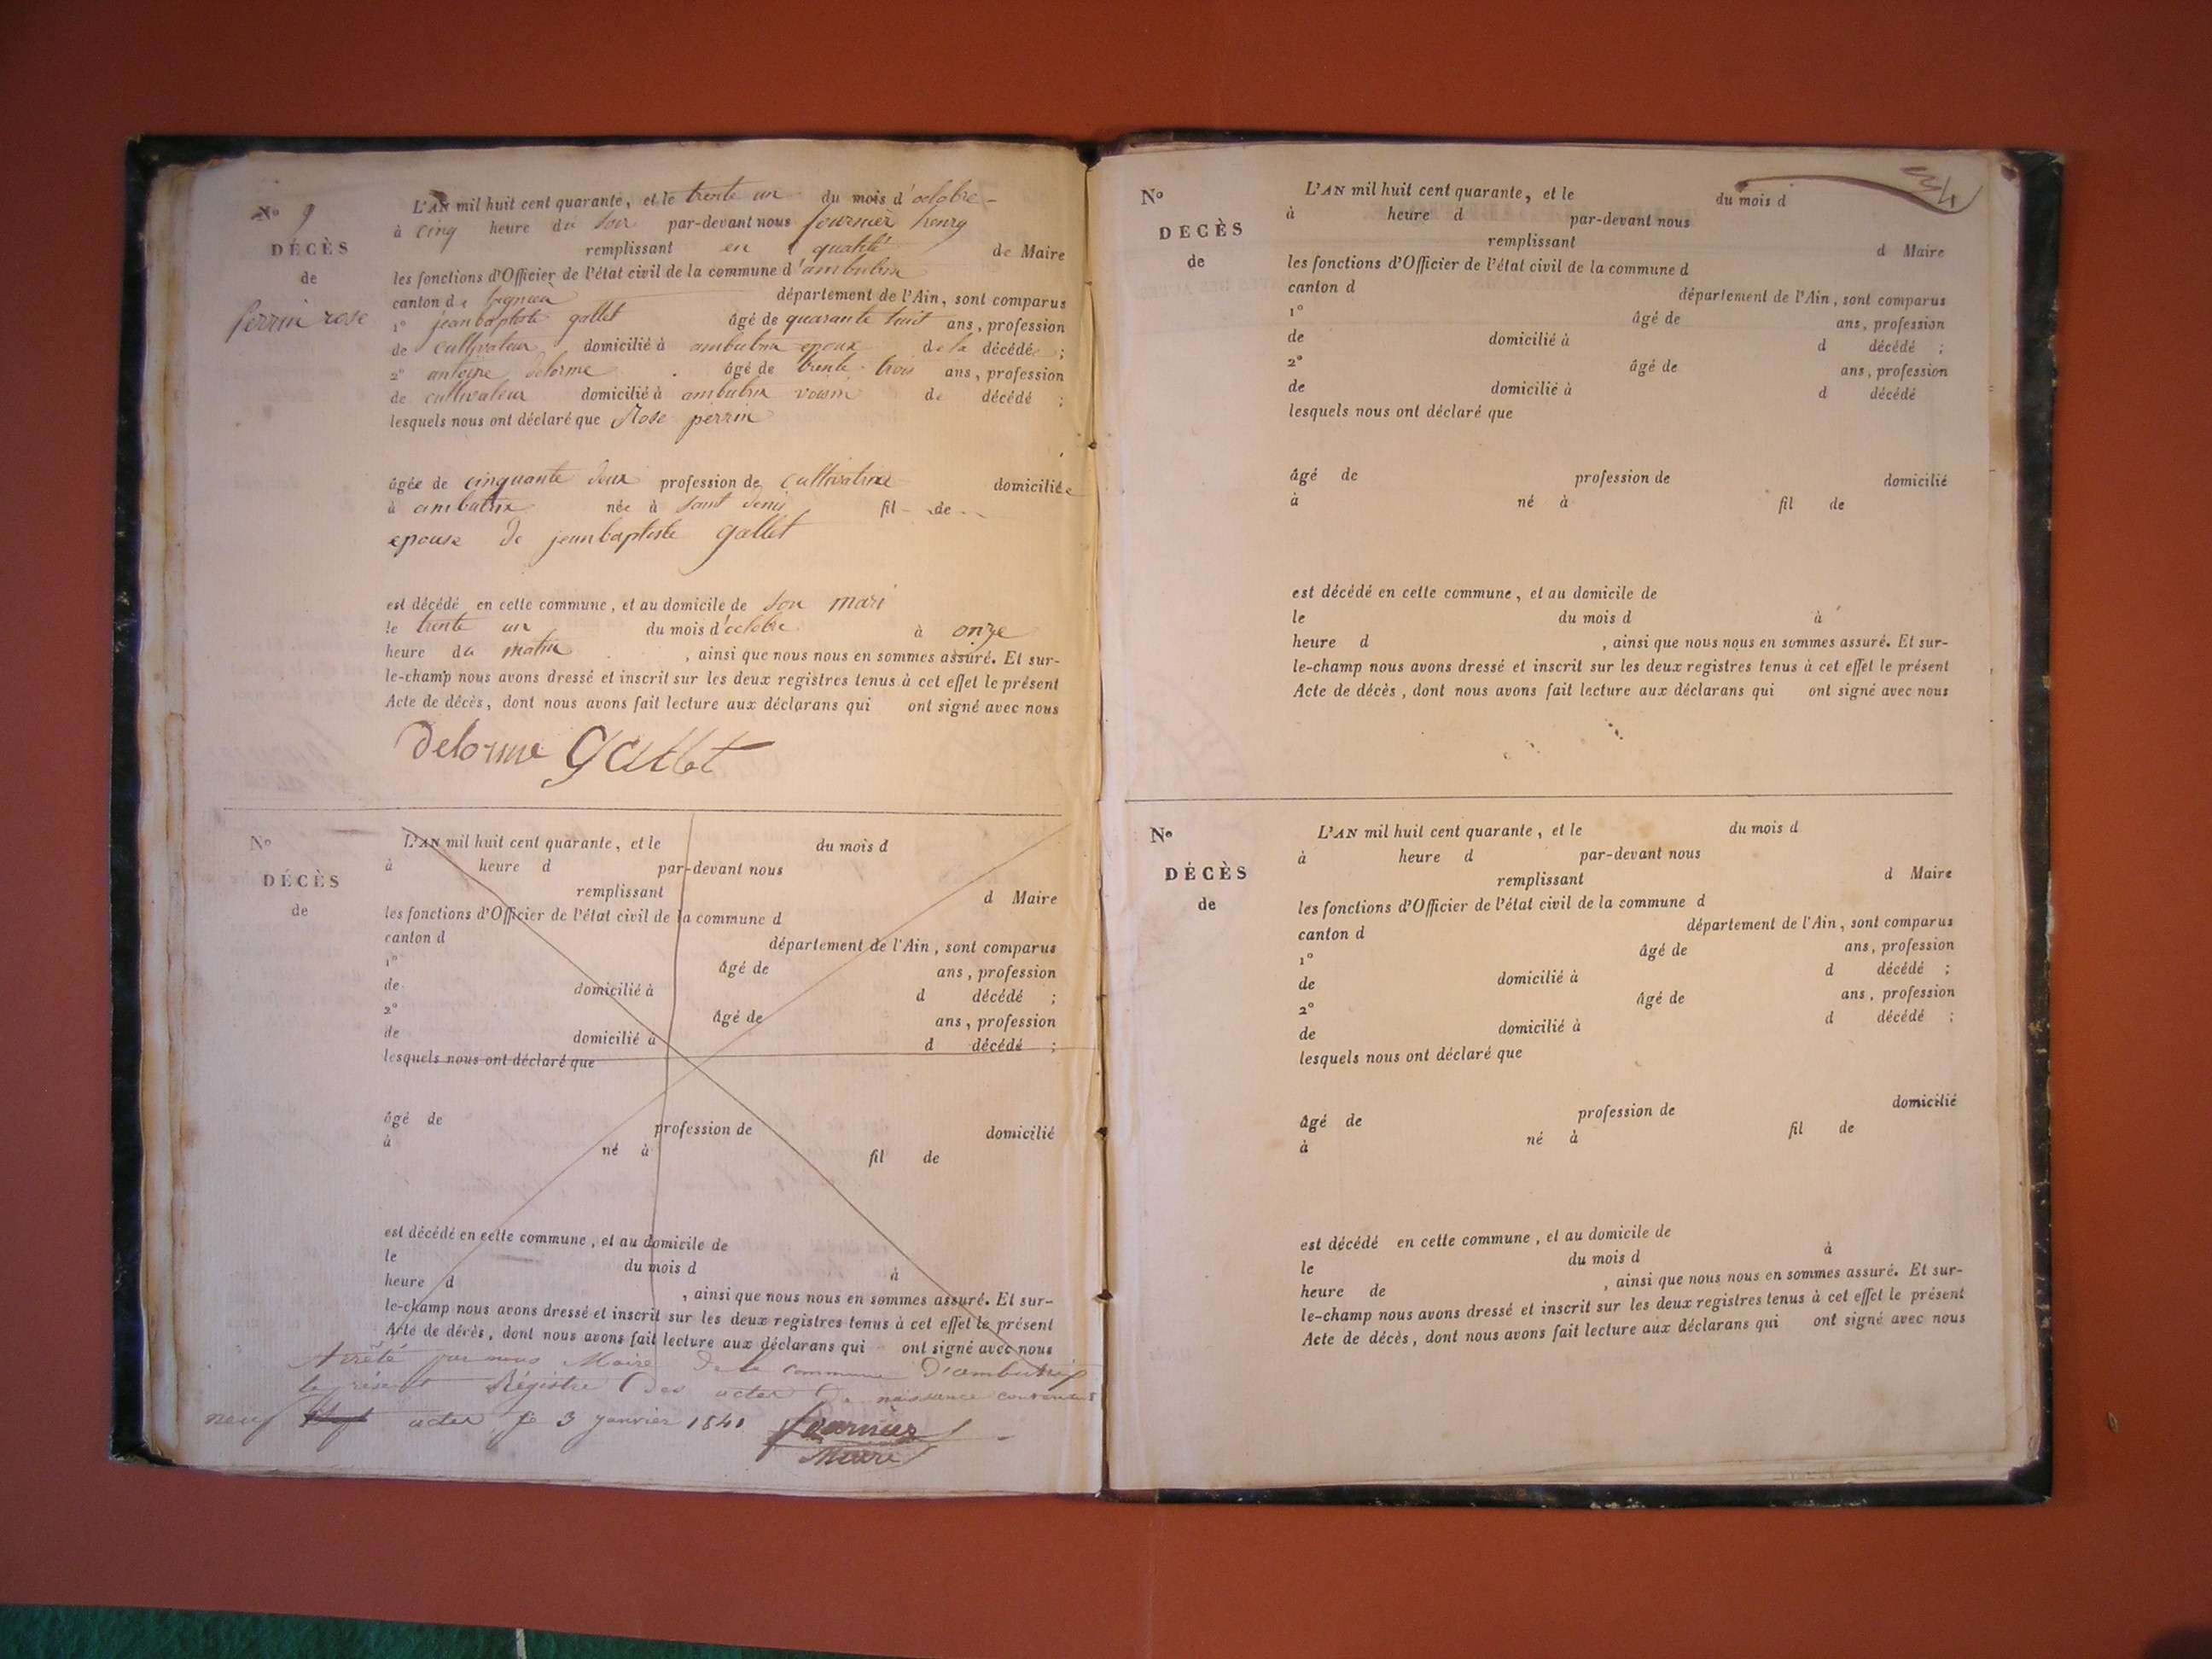 N° 9
DÉCÈS
de
perrin rose
L'AN mil huit cent quarante, et le trente un du mois d'octobre
à cinq heure du soir par-devant nous fournier henry
remplissant en qualité de Maire
les fonctions d'Officier de l'état civil de la commune d'ambutrix
canton de lagnieu département de l'Ain, sont comparus
1° jean baptiste gallet âgé de quarante huit ans, profession
de cultivateur domicilié à ambutrix epoux de la décédée ;
2° antoine delorme âgé de trente trois ans, profession
de cultivateur domicilié à ambutrix voisin de décédé ;
lesquels nous ont déclaré que Rose perrin
âgée de cinquante deux profession de cultivatrice domiciliée
à ambutrix née à saint denis fil de
epouse de jean baptiste gallet
est décédé en cette commune, et au domicile de son mari
le trente un du mois d'octobre à onze
heure du matin , ainsi que nous nous en sommes assuré. Et sur-
le-champ nous avons dressé et inscrit sur les deux registres tenus à cet effet le présent
Acte de décès, dont nous avons fait lecture aux déclarans qui ont signé avec nous
Delorme Gallet
N°
DÉCÈS
de
L'AN mil huit cent quarante, et le du mois d
à heure d par-devant nous
remplissant d Maire
les fonctions d'Officier de l'état civil de la commune d
canton d département de l'Ain, sont comparus
1° âgé de ans, profession
de domicilié à d décédé ;
2° âgé de ans, profession
de domicilié à d décédé ;
lesquels nous ont déclaré que
âgé de profession de domicilié
à né à fil de
est décédé en cette commune, et au domicile de
le du mois d à
heure d , ainsi que nous nous en sommes assuré. Et sur-
le-champ nous avons dressé et inscrit sur les deux registres tenus à cet effet le présent
Acte de décès, dont nous avons fait lecture aux déclarans qui ont signé avec nous
Arrêté par nous Maire de la commune D'ambutrix
le présent Régistre des actes de naissance contenant
neuf actes le 3 janvier 1841 fournier
Maire
N°
DÉCÈS
de
L'AN mil huit cent quarante, et le du mois d
à heure d par-devant nous
remplissant d Maire
les fonctions d'Officier de l'état civil de la commune d
canton d département de l'Ain, sont comparus
1° âgé de ans, profession
de domicilié à d décédé ;
2° âgé de ans, profession
de domicilié à d décédé
lesquels nous ont déclaré que
âgé de profession de domicilié
à né à fil de
est décédé en cette commune, et au domicile de
le du mois d à
heure d , ainsi que nous nous en sommes assuré. Et sur-
le-champ nous avons dressé et inscrit sur les deux registres tenus à cet effet le présent
Acte de décès, dont nous avons fait lecture aux déclarans qui ont signé avec nous
N°
DÉCÈS
de
L'AN mil huit cent quarante, et le du mois d
à heure d par-devant nous
remplissant d Maire
les fonctions d'Officier de l'état civil de la commune d
canton d département de l'Ain, sont comparus
1° âgé de ans, profession
de domicilié à d décédé ;
2° âgé de ans, profession
de domicilié à d décédé ;
lesquels nous ont déclaré que
âgé de profession de domicilié
à né à fil de
est décédé en cette commune, et au domicile de
le du mois d à
heure de , ainsi que nous nous en sommes assuré. Et sur-
le-champ nous avons dressé et inscrit sur les deux registres tenus à cet effet le présent
Acte de décès, dont nous avons fait lecture aux déclarans qui ont signé avec nous